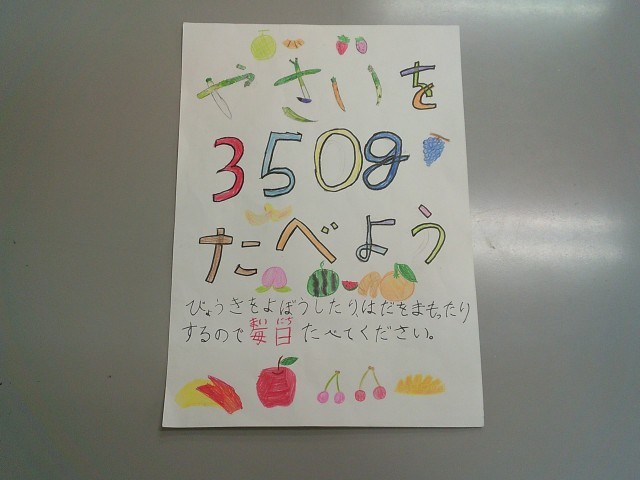 やさいを
350g
たべよう
びょうきをよぼうしたり、はだをまもったり
まいにち
するので毎日たべてください。